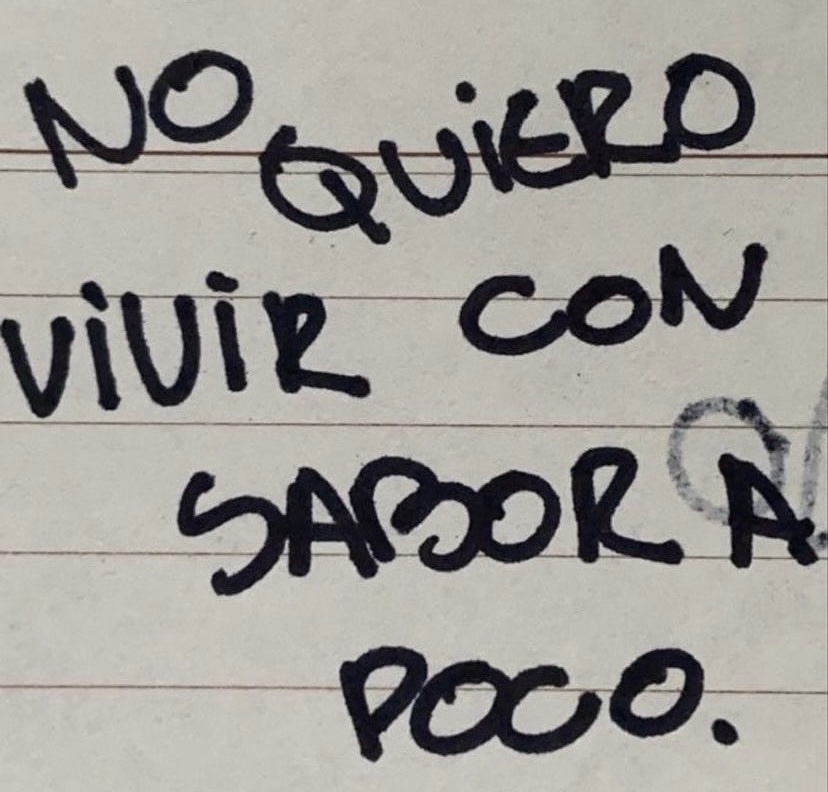 NO QUiERO
ViViR CON
SABOR A
POCO.